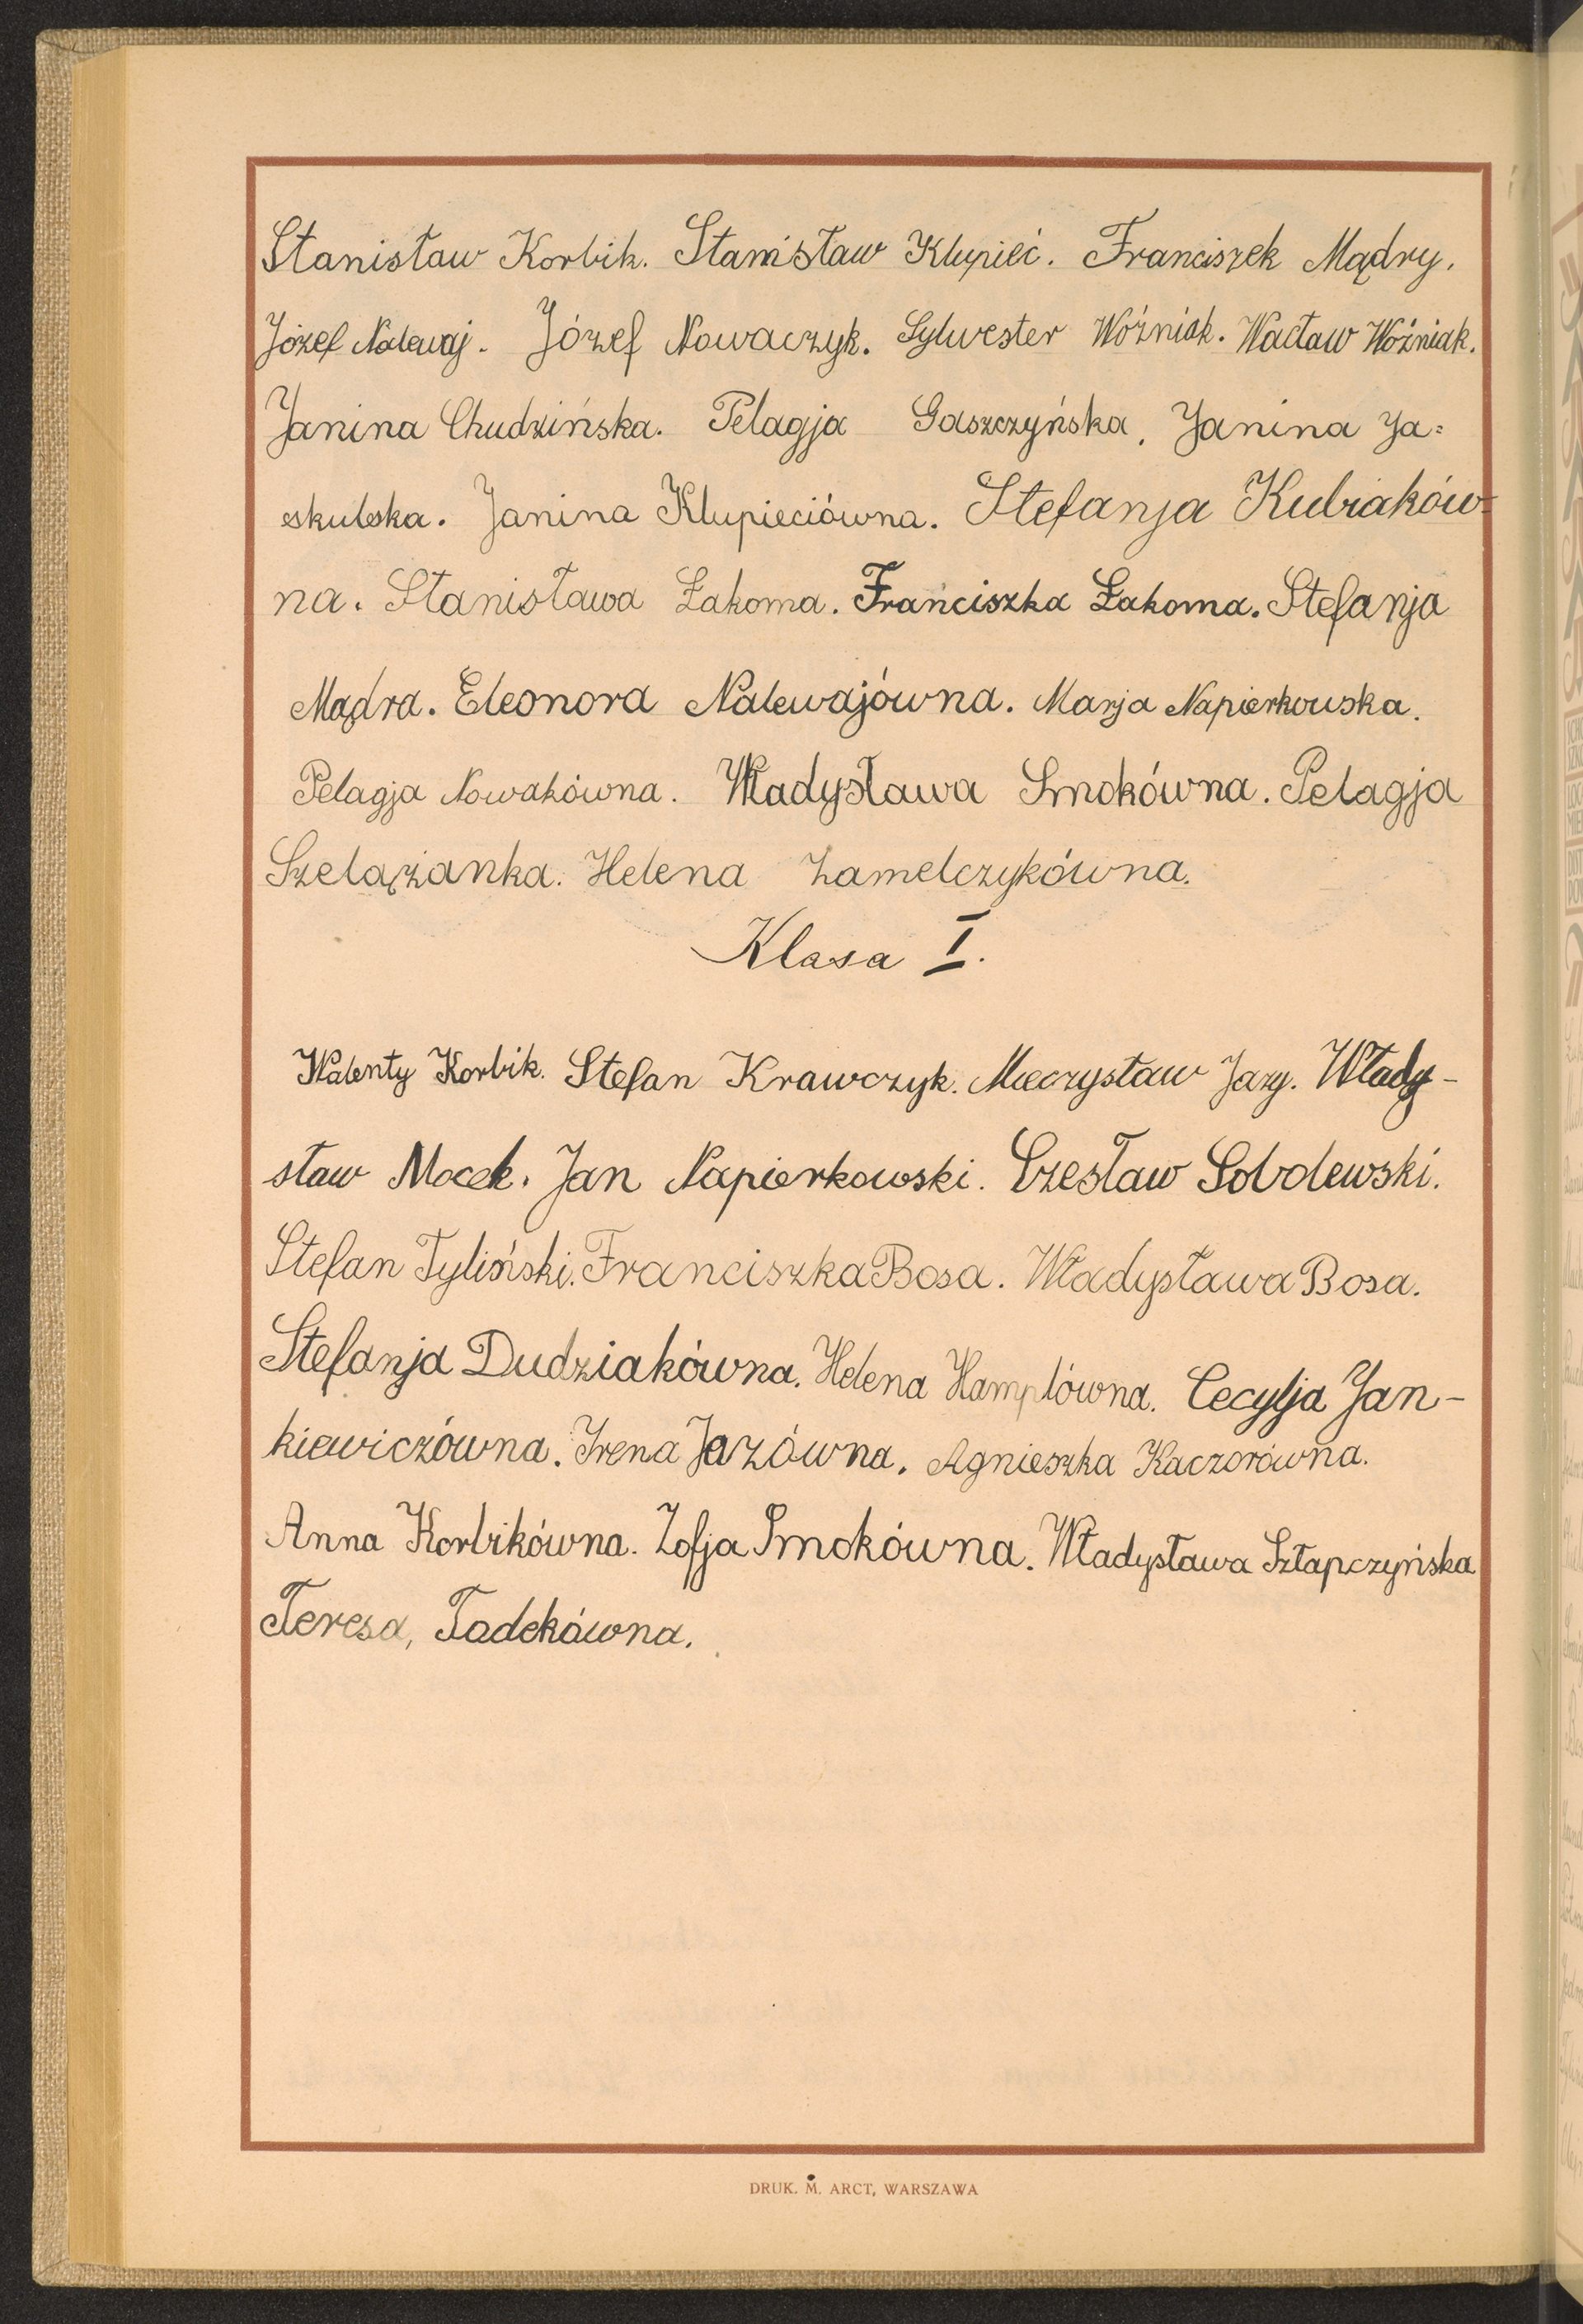 Stanisław Korbik. Stanisław Klupieć. Franciszek Mądry.
Józef Nalewaj. Józef Nowaczyk. Sylwester Woźniak. Wacław Woźniak.
Janina Chudzińska. Pelagja Gaszczyńska. Janina Ja=
skulska. Janina Klupieciówna. Stefanja Kubiaków=
na. Stanisława Łakoma. Franciszka Łakoma. Stefanja
Mądra. Eleonora Nalewajówna. Marja Napierkowska.
Pelagja Nowakówna. Władysława Smokówna. Pelagja
Szelążanka. Helena Zamelczykówna.
Klasa I.
Walenty Korbik. Stefan Krawczyk. Mieczysław Jazy. Włady-
sław Mocek. Jan Napierkowski. Czesław Sobolewski.
Stefan Tyliński. Franciszka Bosa. Władysława Bosa.
Stefanja Dudziakówna. Helena Hamplówna. Cecylja Jan-
kiewiczówna. Irena Jazówna. Agnieszka Kaczorówna.
Anna Korbikówna. Zofja Smokówna. Władysława Sztapczyńska
Teresa, Tadekówna.
DRUK. M. ARCT, WARSZAWA